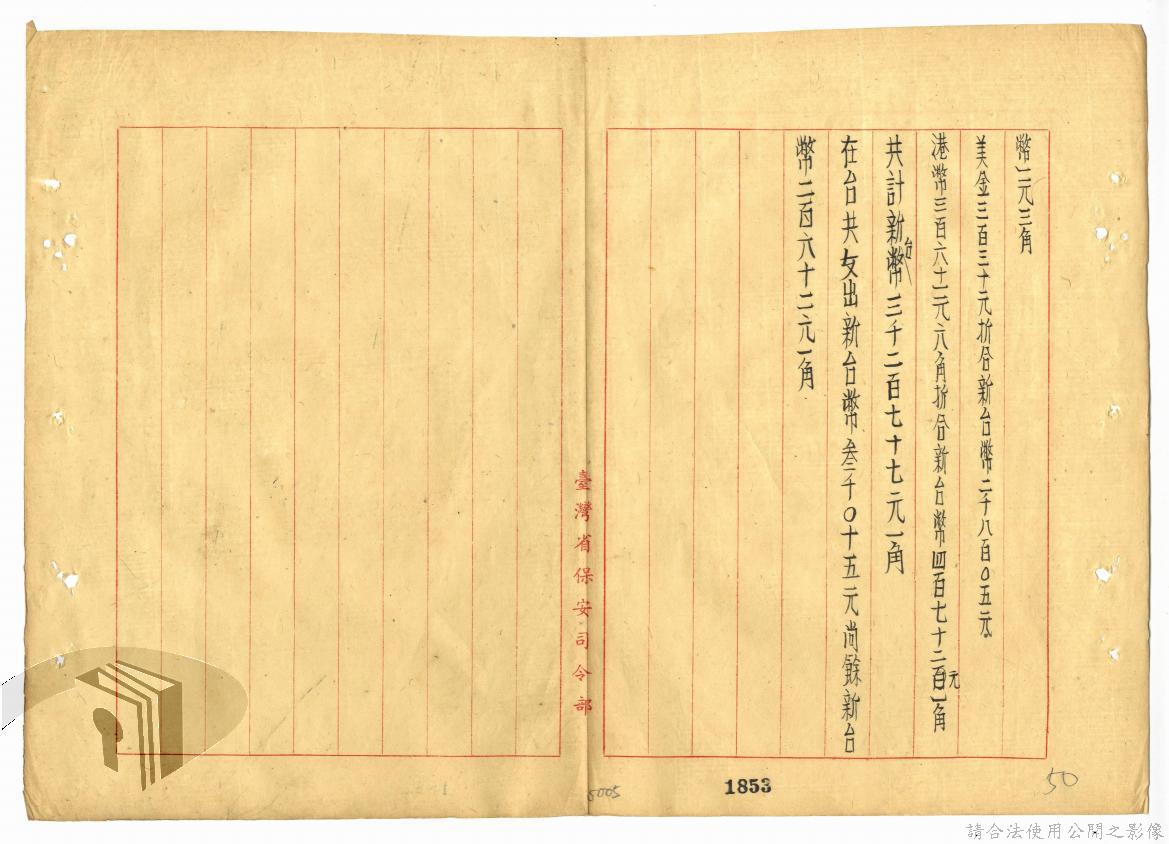 幣一元三角
美金三百三十元折合新台幣二千八百〇五元
港幣三百六十一元六角折合新台幣四百七十二元一角
共計新台幣三千二百七十七元一角
在台共支出新台幣叁千〇十五元尚餘新台
幣二百六十二元一角
臺灣省保安司令部
1853
50
5005
請合法使用公開之影像